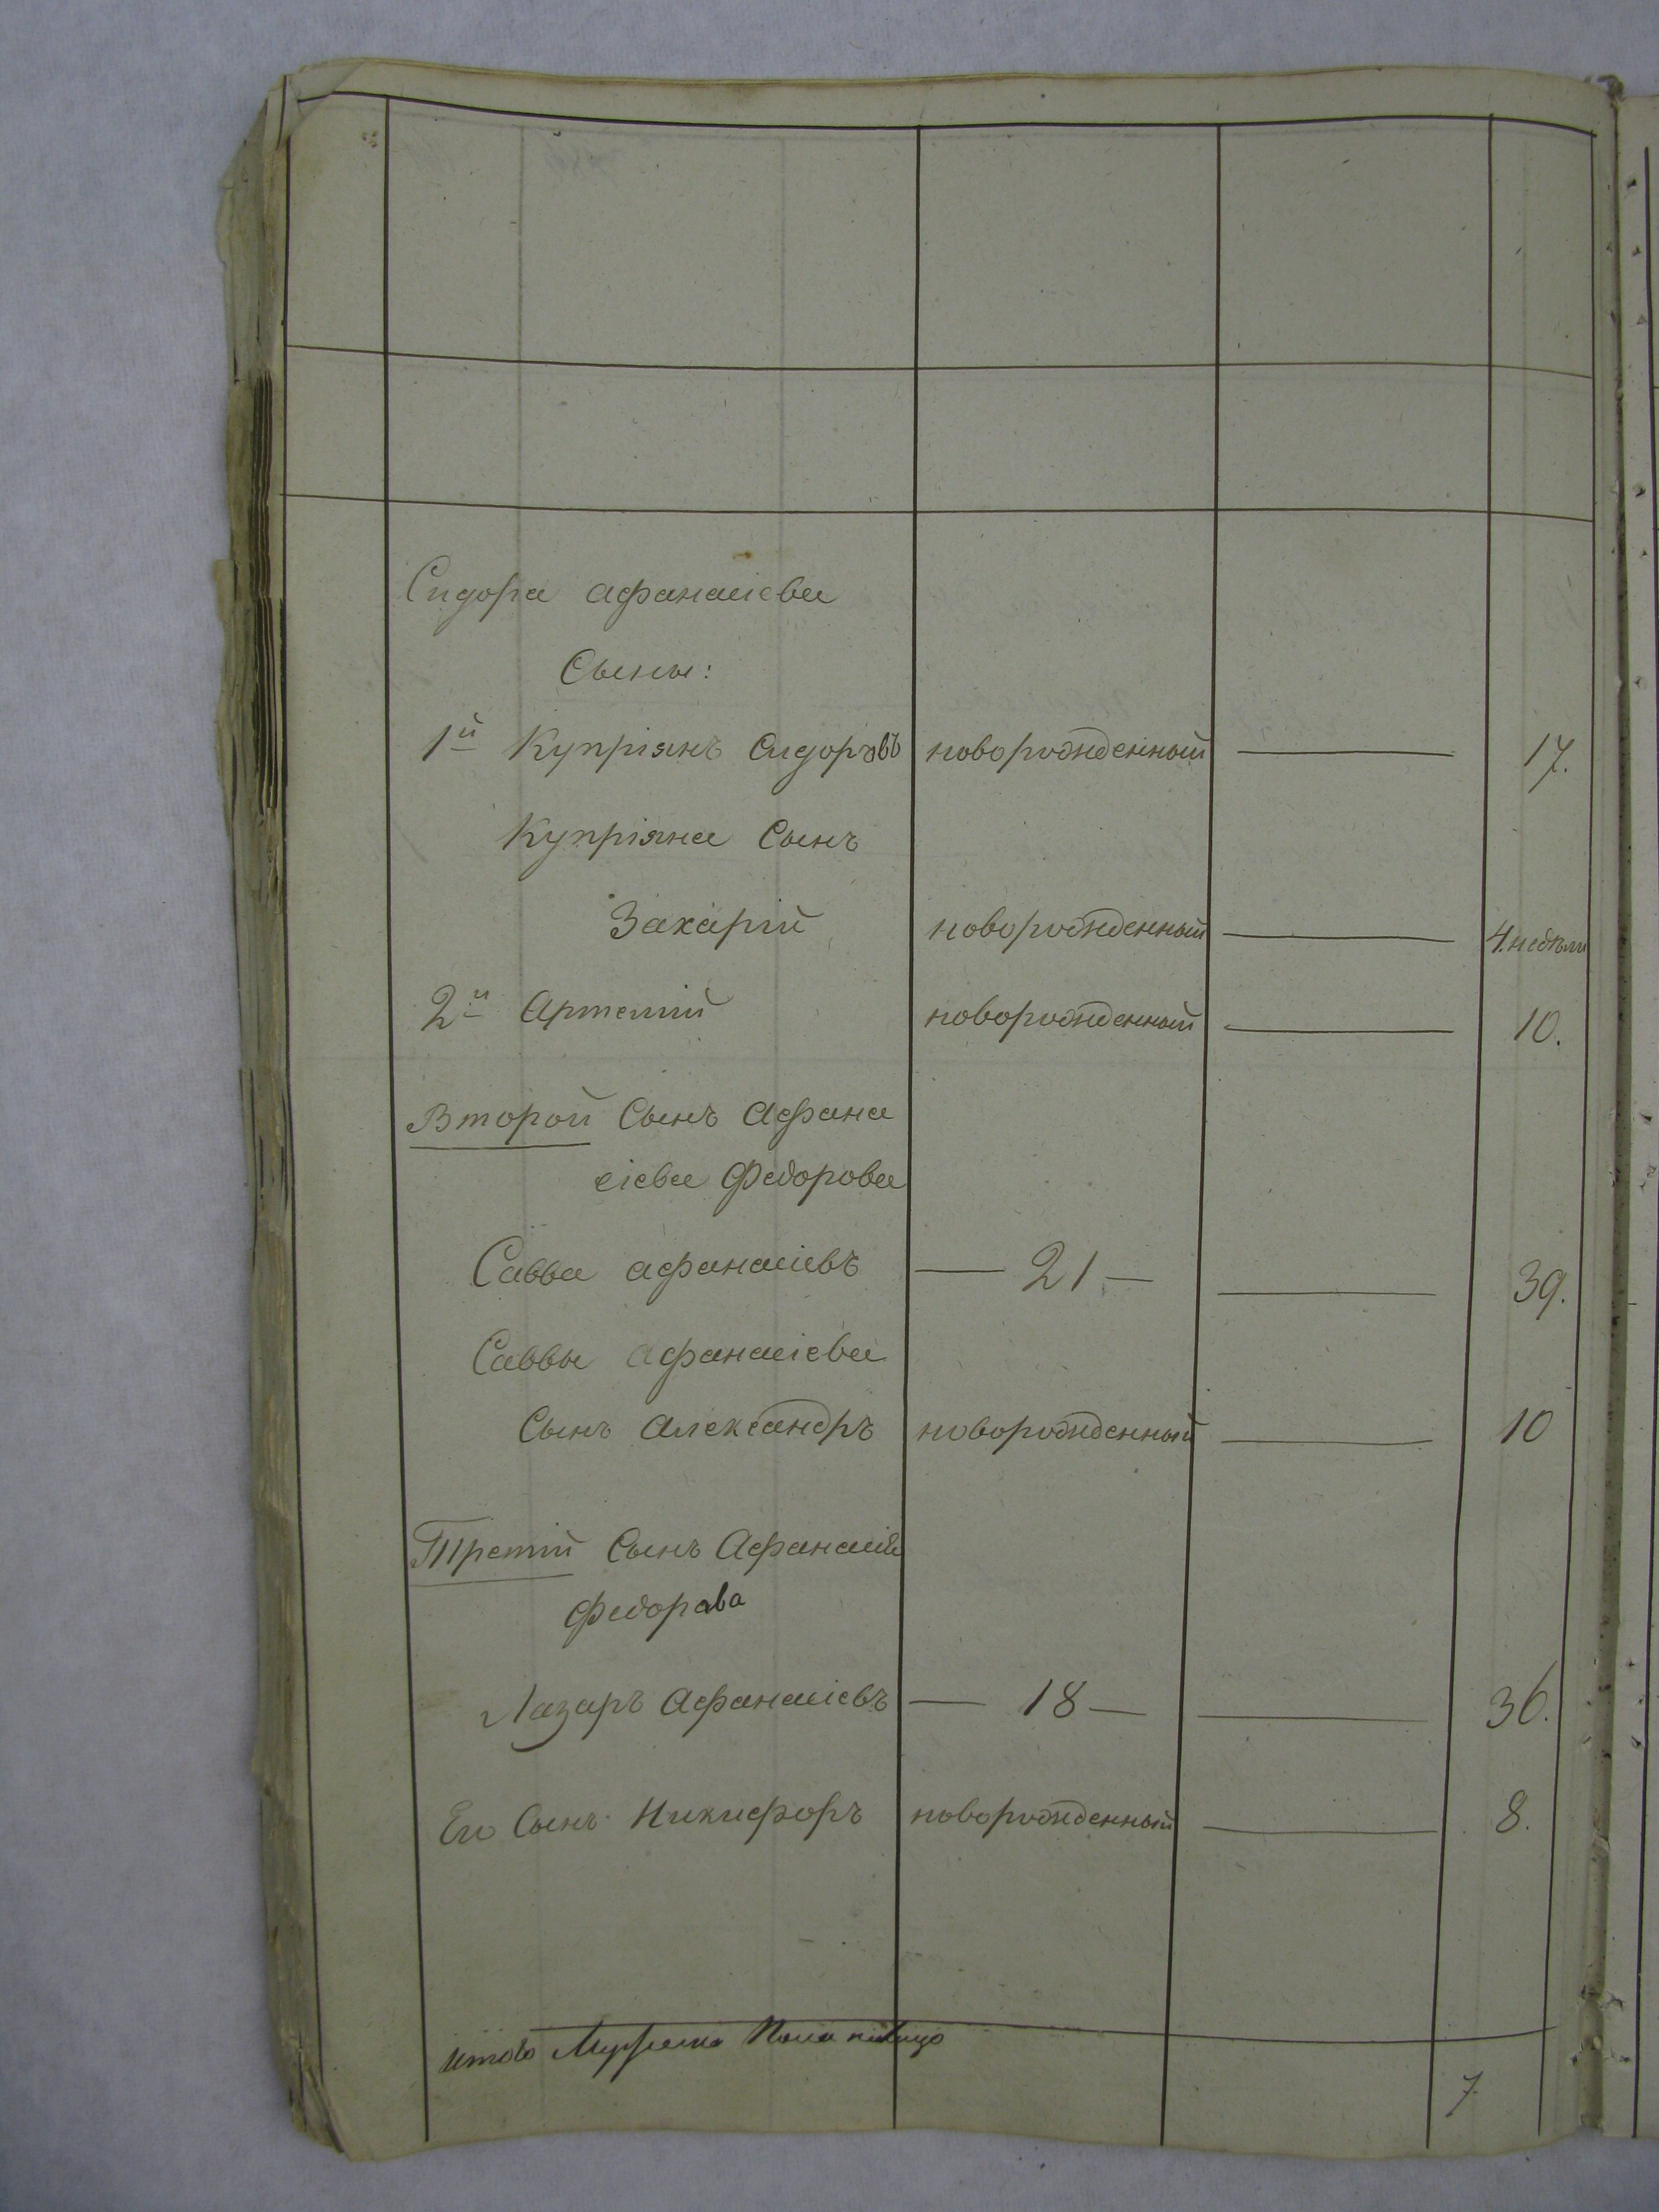 Сидора Афанасіева
Сыны:
1й Купріянъ Сидоровъ новорожденный — 17.
Купріяна Сынъ
Захарій новорожденный — 4. недѣли
2й Артемій новорожденный — 10.
Второй Сынъ Афана
сіева Федорова
Савва Афанасіевъ — 21 — — 39.
Саввы Афанасіева
Сынъ Александръ новорожденный — 10
Третій Сынъ Афанасія
Федорова
Лазарь Афанасіевъ — 18 — — 36.
Его Сынъ Никифоръ новорожденный — 8.
Итого Мужеска Пола налицо
7